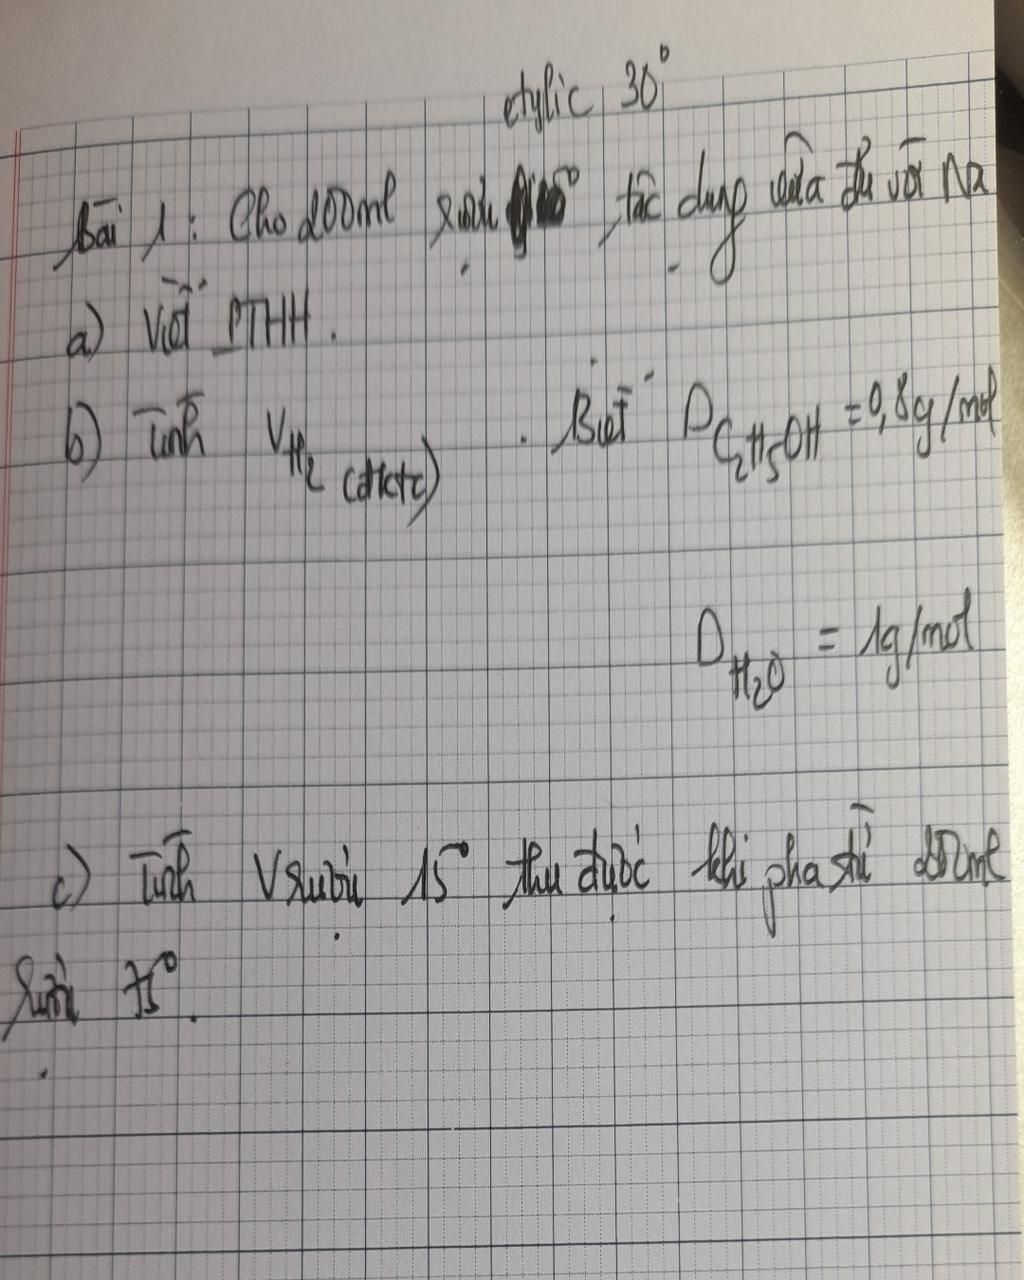 etylic 30°
Bài 1: Cho 200ml rượu tác dụng vừa đủ với Na
a) Viết PTHH.
b) Tính V H₂ (đktc). Biết D C₂H₅OH = 0,8g/mol
D H₂O = 1g/mol
c) Tính V rượu 15° thu được khi pha từ 200ml
rượu 75°.